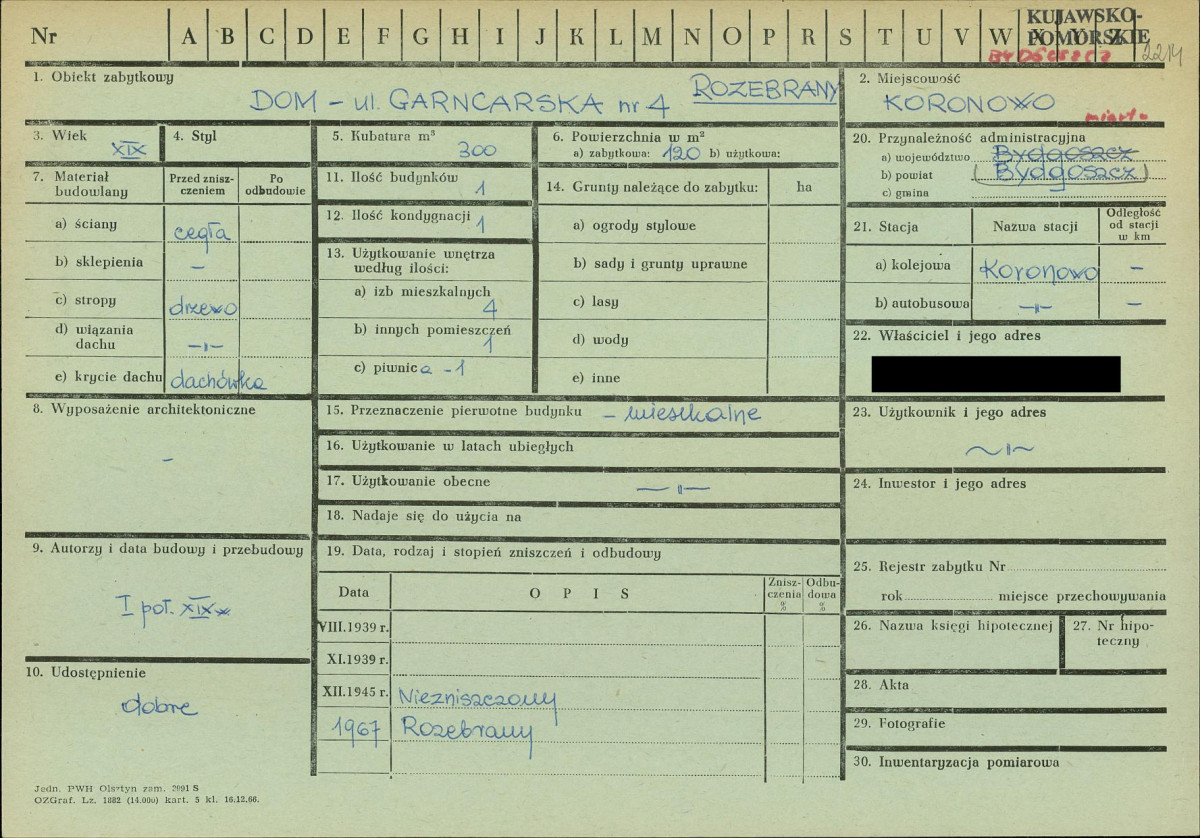 Nr A B C D E F G H I J K L M N O P R S T U V W X Y Z
KUJAWSKO-
POMORSKIE
BYDGOSZCZ 2214
1. Obiekt zabytkowy
DOM - ul. GARNCARSKA nr 4 ROZEBRANY
2. Miejscowość
KORONOWO
miasto
3. Wiek XIX
4. Styl
5. Kubatura m³ 300
6. Powierzchnia w m²
a) zabytkowa: 120 b) użytkowa:
20. Przynależność administracyjna
a) województwo Bydgoszcz
b) powiat (Bydgoszcz)
c) gmina
7. Materiał budowlany
Przed znisz-
czeniem
Po
odbudowie
a) ściany cegła
b) sklepienia –
c) stropy drzewo
d) wiązania
dachu –"–
e) krycie dachu dachówka
11. Ilość budynków 1
12. Ilość kondygnacji 1
13. Użytkowanie wnętrza
według ilości:
a) izb mieszkalnych 4
b) innych pomieszczeń 1
c) piwnica - 1
14. Grunty należące do zabytku: ha
a) ogrody stylowe
b) sady i grunty uprawne
c) lasy
d) wody
e) inne
21. Stacja Nazwa stacji
Odległość
od stacji
w km
a) kolejowa Koronowo –
b) autobusowa –"– –
22. Właściciel i jego adres
8. Wyposażenie architektoniczne
–
15. Przeznaczenie pierwotne budynku – mieszkalne
16. Użytkowanie w latach ubiegłych
17. Użytkowanie obecne –"–
18. Nadaje się do użycia na
23. Użytkownik i jego adres
–"–
24. Inwestor i jego adres
9. Autorzy i data budowy i przebudowy
I poł. XIX w
19. Data, rodzaj i stopień zniszczeń i odbudowy
Data OPIS
Znisz-
czenia
%
Odbu-
dowa
%
VIII.1939 r.
XI.1939 r.
XII.1945 r. Niezniszczony
1967 Rozebrany
25. Rejestr zabytku Nr
rok miejsce przechowywania
26. Nazwa księgi hipotecznej
27. Nr hipo-
teczny
10. Udostępnienie
dobre
28. Akta
29. Fotografie
30. Inwentaryzacja pomiarowa
Jedn. PWH Olsztyn zam. 2991 S
OZGraf. Lz. 1882 (14.000) kart. 5 kl. 16.12.66.